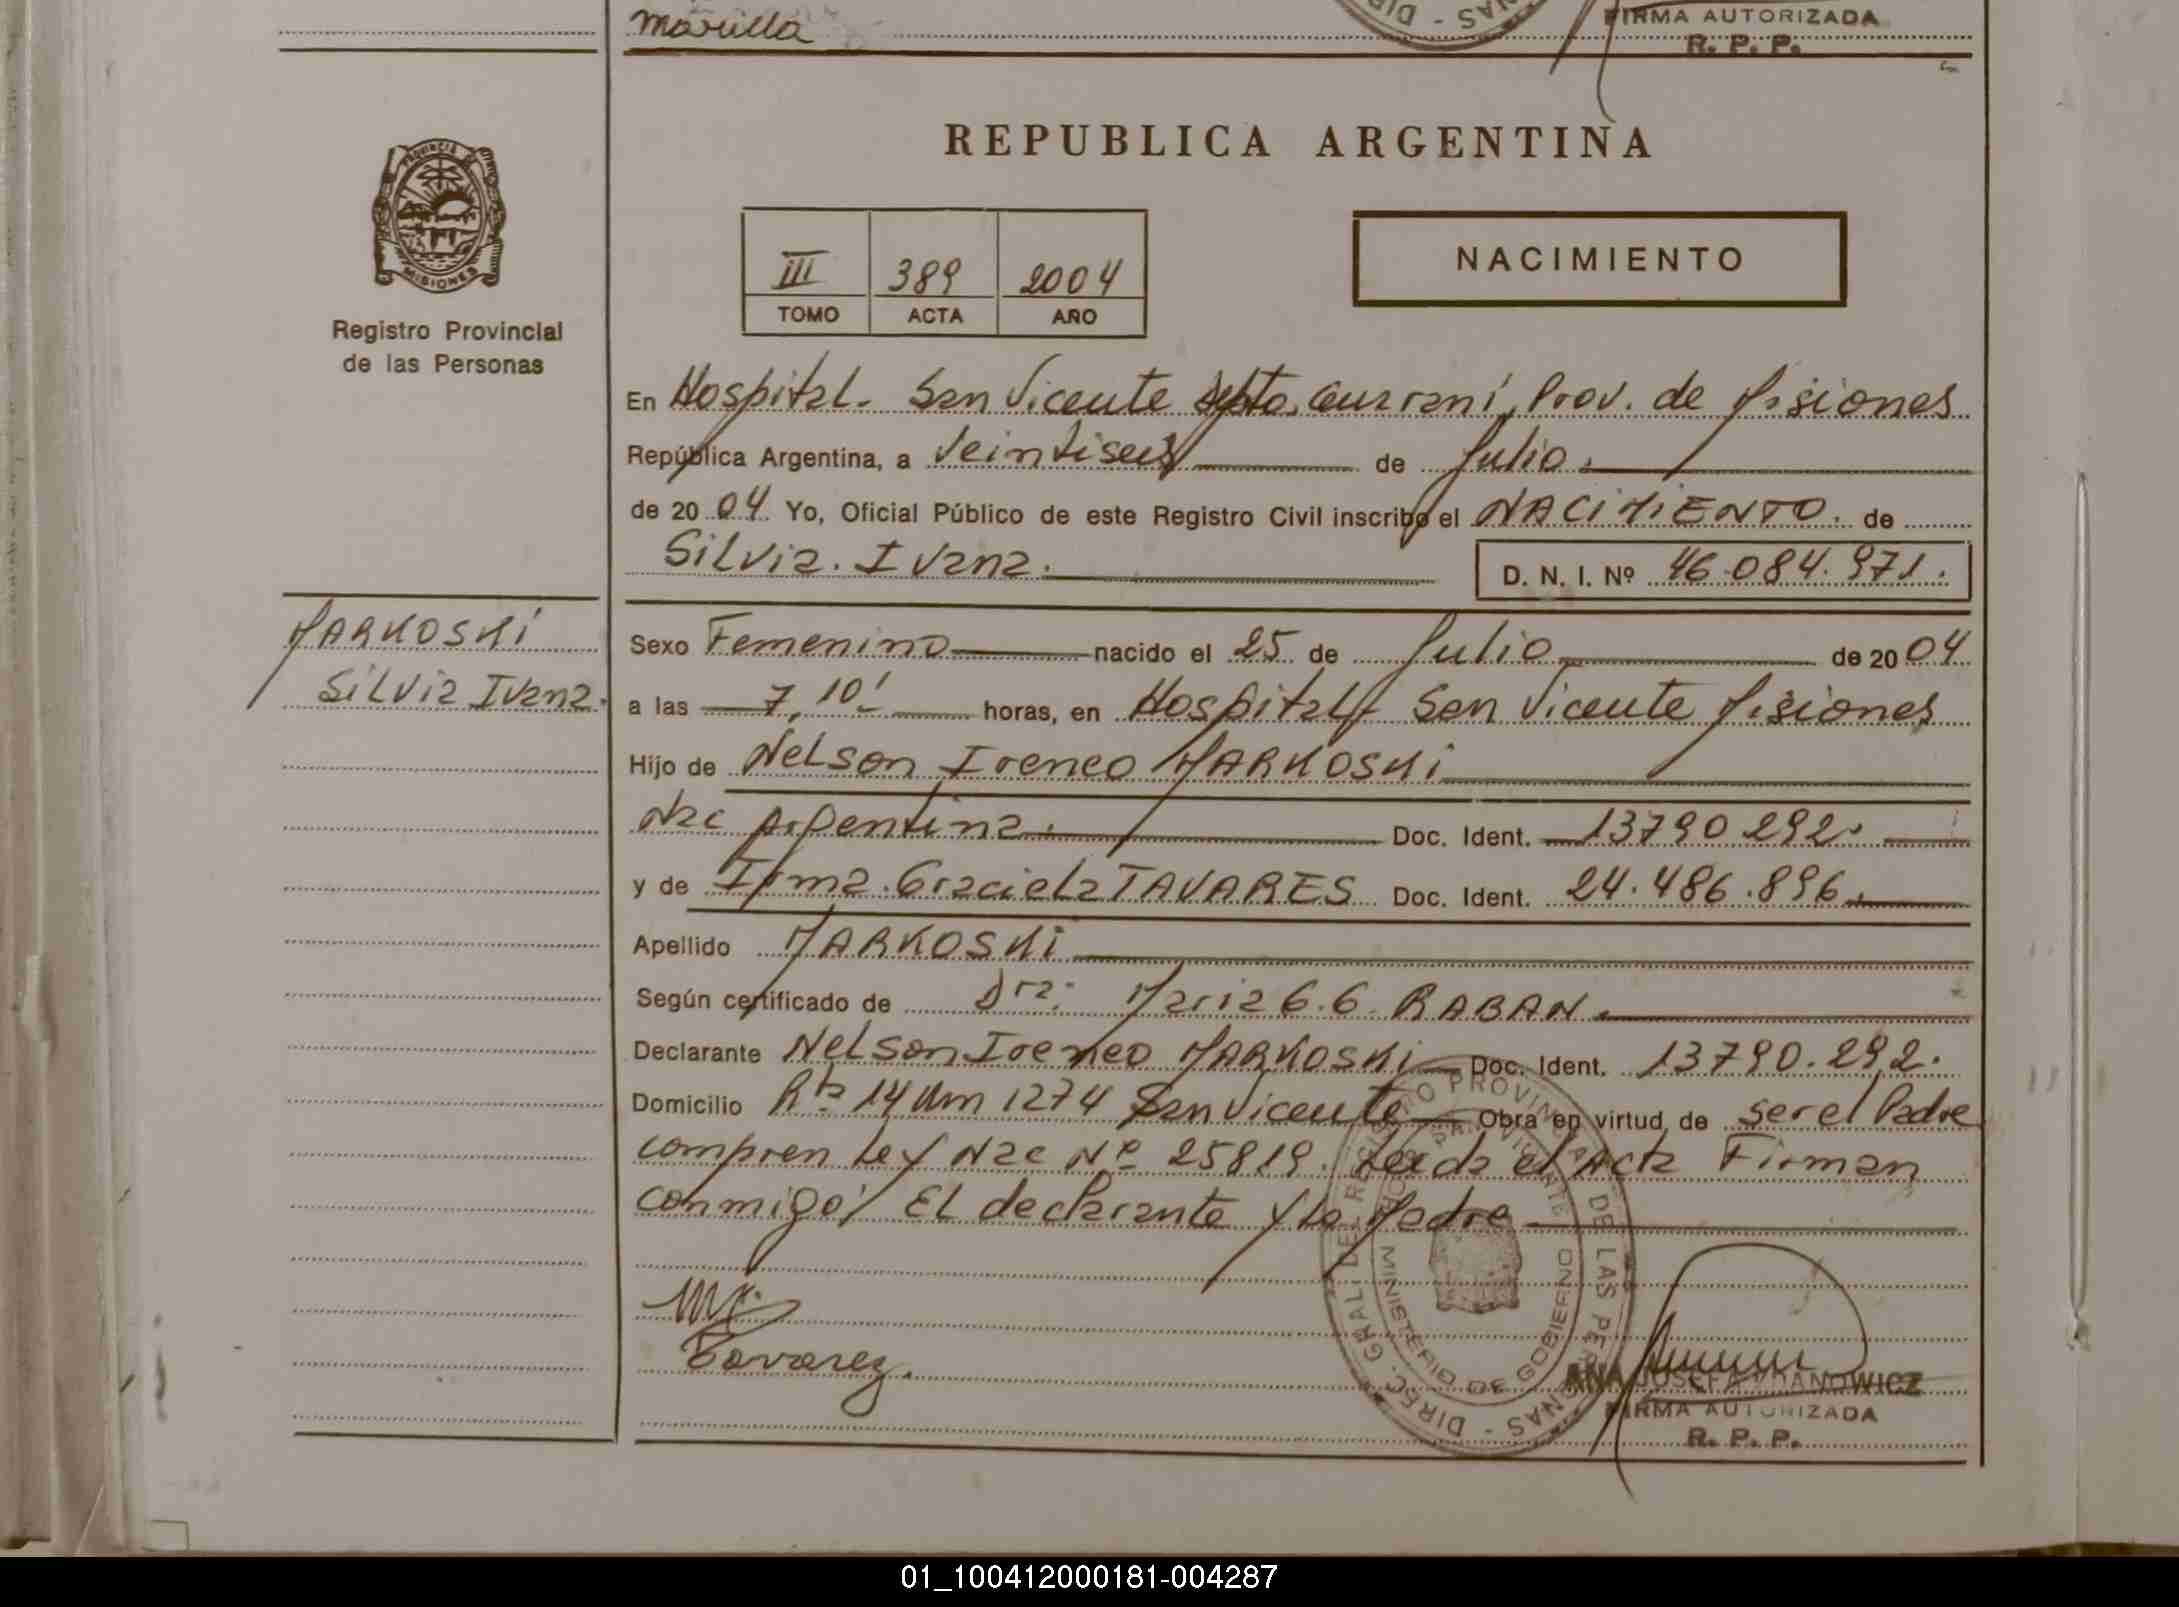 marilla
FIRMA AUTORIZADA
R. P. P.
PROVINCIA DE
MISIONES
Registro Provincial
de las Personas
REPUBLICA ARGENTINA
III 389 2004
TOMO ACTA AÑO
NACIMIENTO
En Hospital. San Vicente Dpto. Guaraní, Prov. de Misiones
República Argentina, a Veintiseis de Julio.
de 20 04 Yo, Oficial Público de este Registro Civil inscribo el NACIMIENTO. de
Silvia. Ivana. D. N. I. Nº 46.084.971.
MARKOSKI
Silvia Ivana.
Sexo Femenino nacido el 25 de Julio de 20 04
a las 7,10' horas, en Hospital San Vicente Misiones
Hijo de Nelson Ireneo MARKOSKI
Nac Argentina. Doc. Ident. 13790292.
y de Irma. Graciela TAVARES Doc. Ident. 24.486.896.
Apellido MARKOSKI
Según certificado de Dra: Maria G. G. RABAN.
Declarante Nelson Ireneo MARKOSKI Doc. Ident. 13790.292.
Domicilio Rta 14 Km 1274 San Vicente Obra en virtud de ser el Padre
compren Ley Nac Nº 25819. Leida el Acta Firman
conmigo, El declarante y la Madre
DIREC. GRAL. DEL REGISTRO PROVINCIAL DE LAS PERSONAS
SAN VICENTE
MINISTERIO DE GOBIERNO
Tavarez.
ANA JOSEFA
FIRMA AUTORIZADA
R. P. P.
01_100412000181-004287